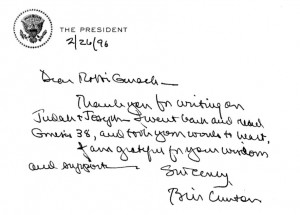 THE PRESIDENT
2/26/96
Dear Rabbi
Thank you for writing on
Judah & Joseph. I went back and read
Genesis 38, and took your words to heart.
I am grateful for your wisdom
and support.
Sincerely,
Bill Clinton